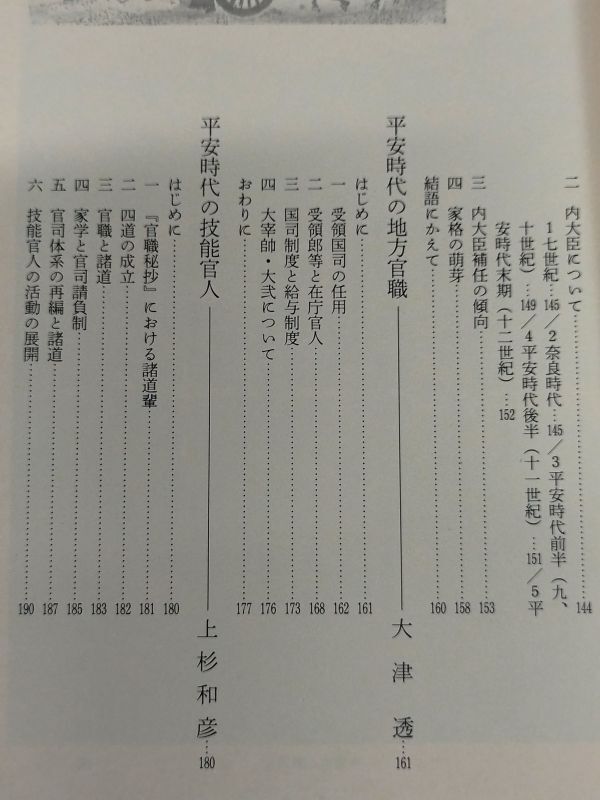 二 内大臣について…144
1 七世紀…145／2 奈良時代…145／3 平安時代前半（九、
十世紀）…149／4 平安時代後半（十一世紀）…151／5 平
安時代末期（十二世紀）…152
三 内大臣補任の傾向…153
四 家格の萌芽…158
結語にかえて…160
平安時代の地方官職――大津 透…161
はじめに…161
一 受領国司の任用…162
二 受領郎等と在庁官人…168
三 国司制度と給与制度…173
四 大宰帥・大弐について…176
おわりに…177
平安時代の技能官人――上杉和彦…180
はじめに…180
一 『官職秘抄』における諸道輩…181
二 四道の成立…182
三 官職と諸道…183
四 家学と官司請負制…185
五 官司体系の再編と諸道…187
六 技能官人の活動の展開…190